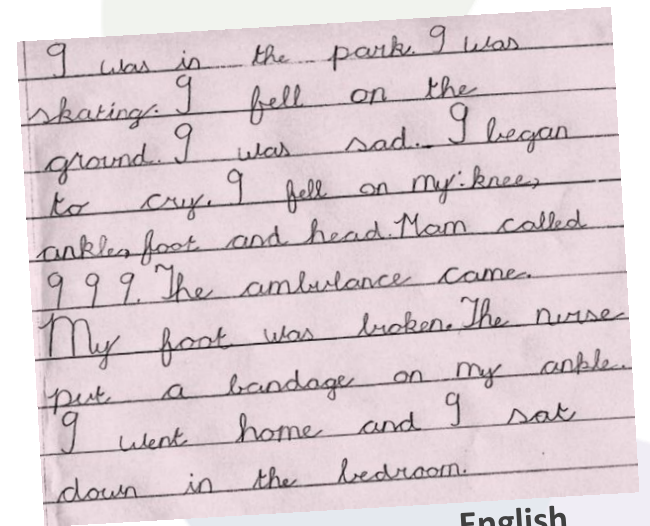 I was in the park. I was
skating. I fell on the
ground. I was sad. I began
to cry. I fell on my knee,
ankle, foot and head. Mam called
999. The ambulance came.
My foot was broken. The nurse
put a bandage on my ankle.
I went home and I sat
down in the bedroom.
English